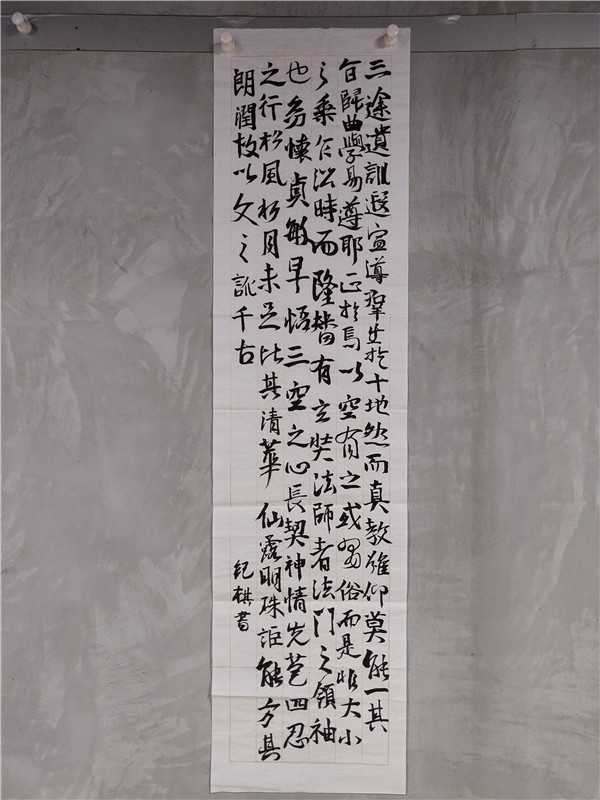 三途遺訓遐宣導群生於十地然而真教難仰莫能一其
旨歸曲學易遵耶正於焉以空有之或習俗而是非大小
之乘乍沿時而隆替有玄奘法師者法門之領袖
也幼懷貞敏早悟三空之心長契神情先苞四忍
之行松風水月未足比其清華仙露明珠詎能方其
朗潤故以文之訛千古
紀棋書